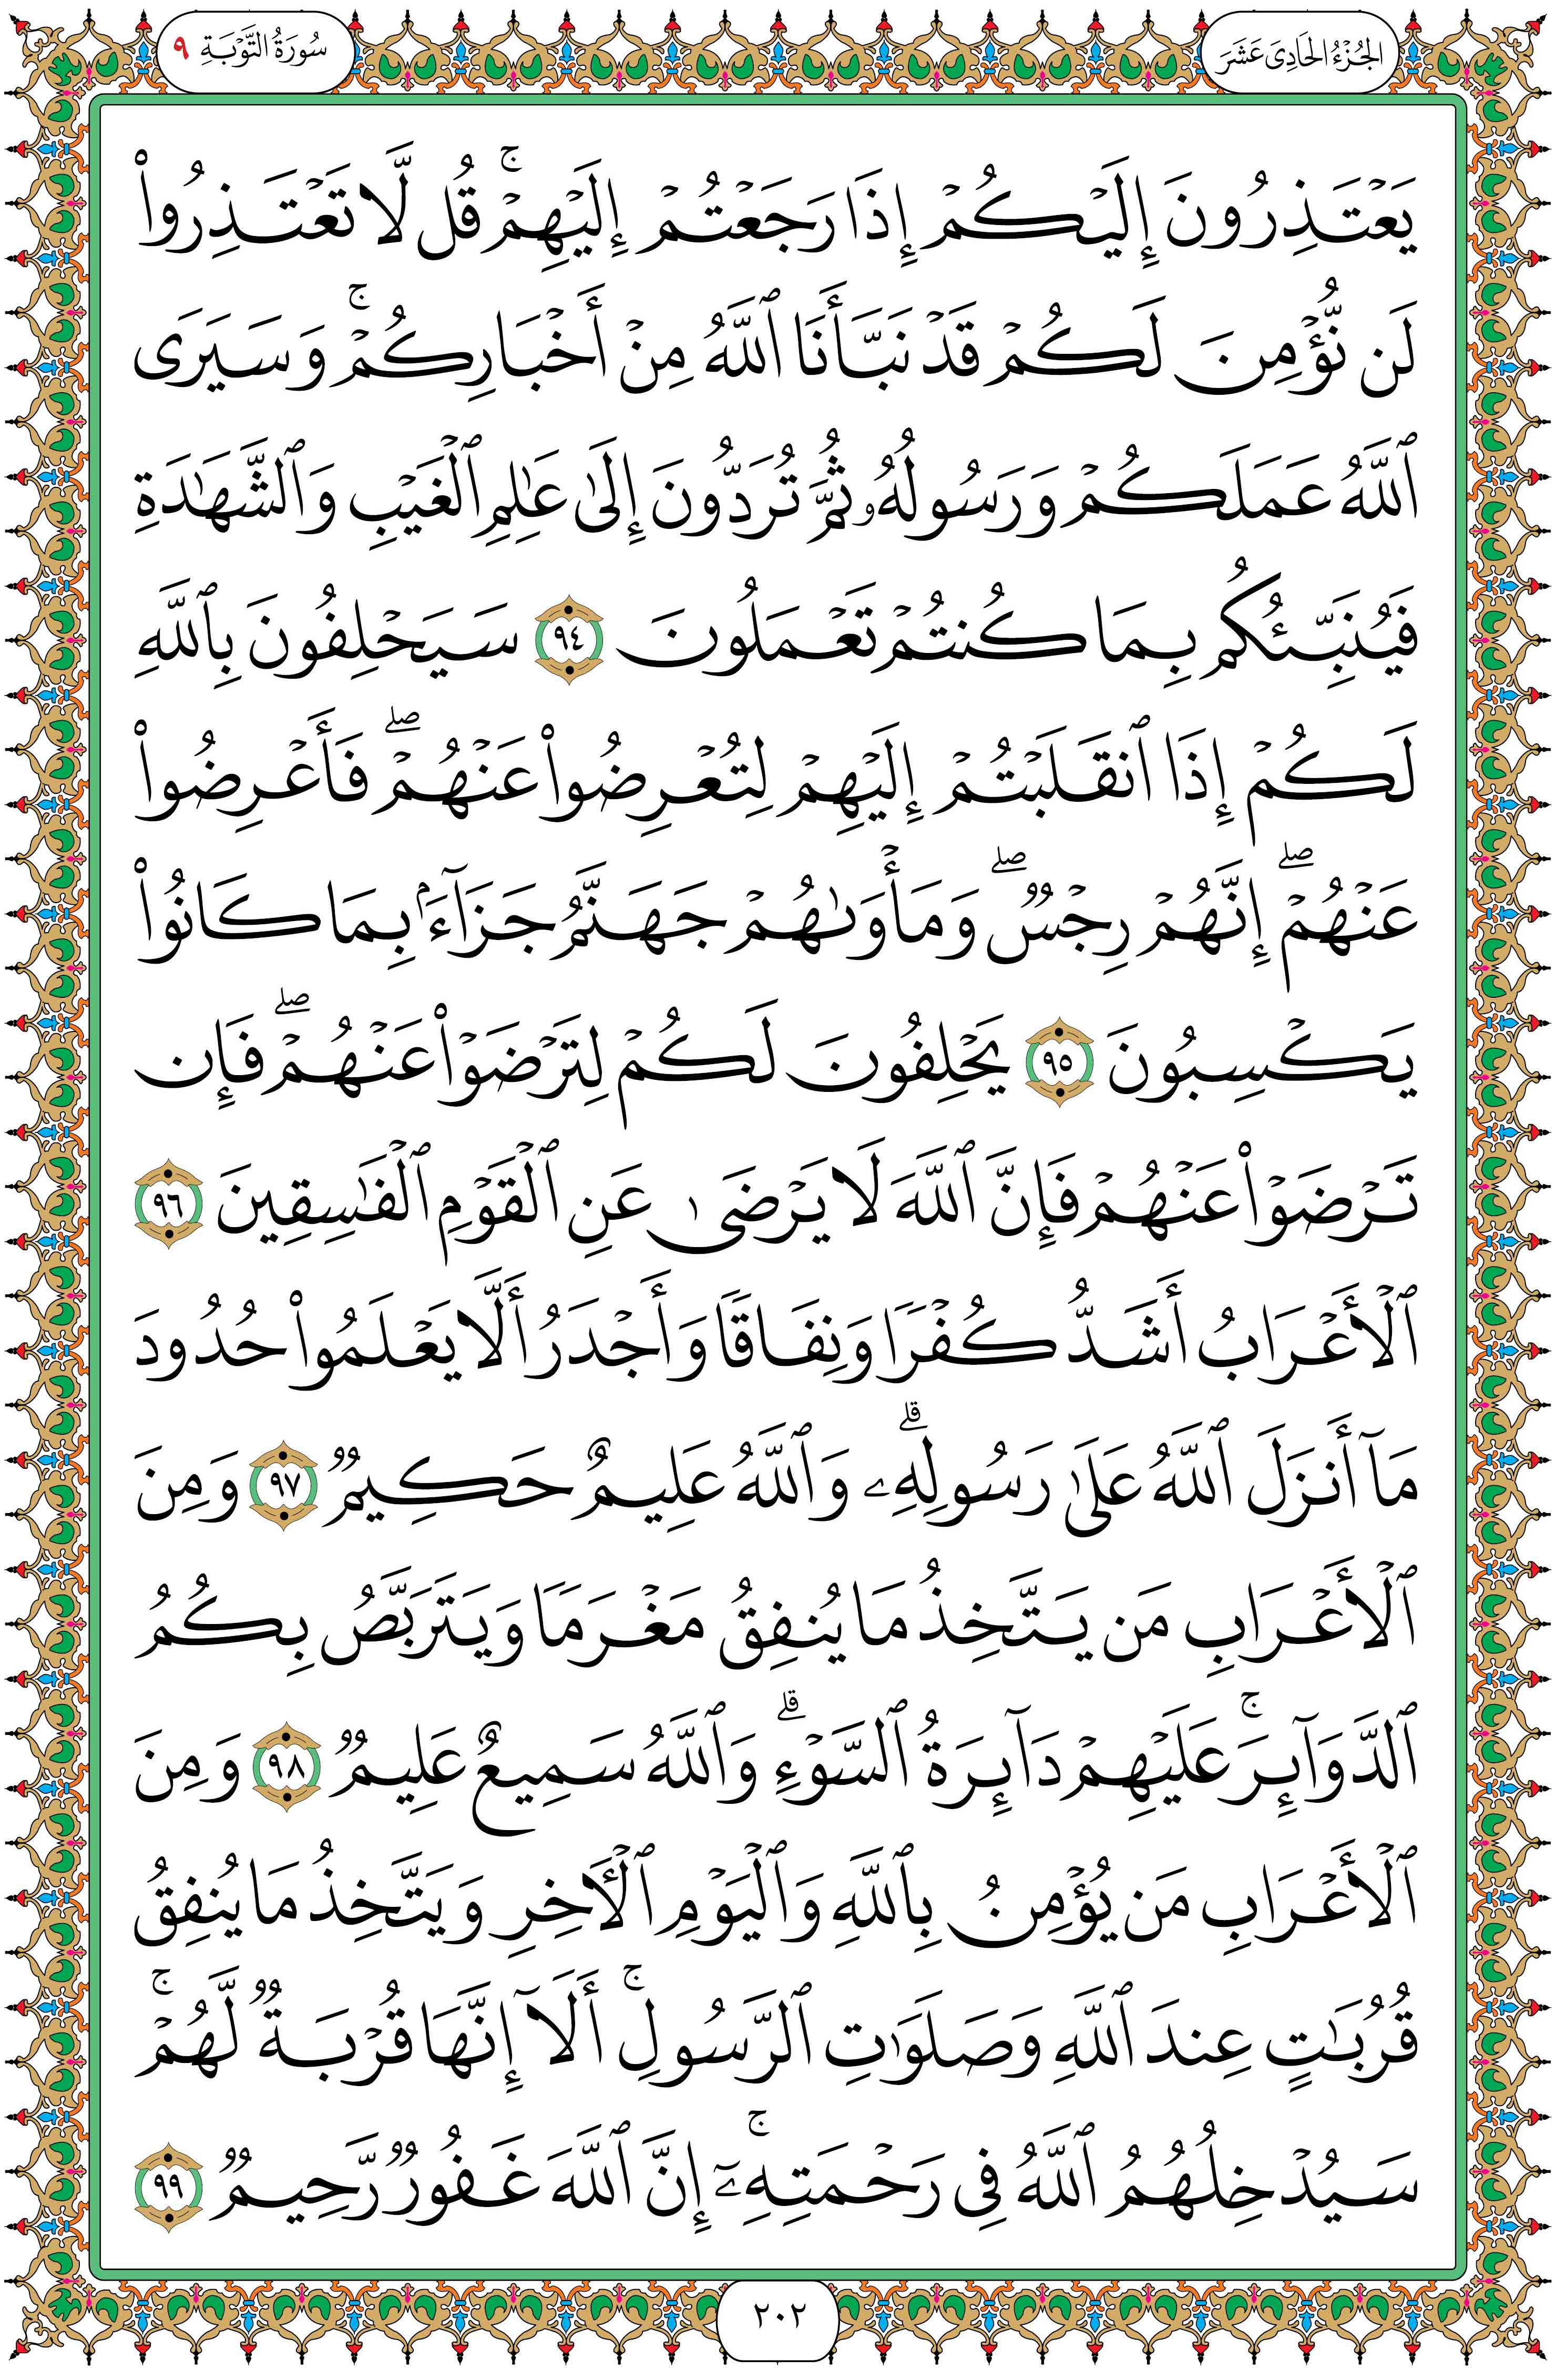 الجُزْءُ الحَادِيَ عَشَرَ
سُورَةُ التَّوْبَةِ ٩
يَعْتَذِرُونَ إِلَيْكُمْ إِذَا رَجَعْتُمْ إِلَيْهِمْ ۚ قُل لَّا تَعْتَذِرُوا۟
لَن نُّؤْمِنَ لَكُمْ قَدْ نَبَّأَنَا ٱللَّهُ مِنْ أَخْبَارِكُمْ ۚ وَسَيَرَى
ٱللَّهُ عَمَلَكُمْ وَرَسُولُهُۥ ثُمَّ تُرَدُّونَ إِلَىٰ عَـٰلِمِ ٱلْغَيْبِ وَٱلشَّهَـٰدَةِ
فَيُنَبِّئُكُم بِمَا كُنتُمْ تَعْمَلُونَ ٩٤ سَيَحْلِفُونَ بِٱللَّهِ
لَكُمْ إِذَا ٱنقَلَبْتُمْ إِلَيْهِمْ لِتُعْرِضُوا۟ عَنْهُمْ ۖ فَأَعْرِضُوا۟
عَنْهُمْ ۖ إِنَّهُمْ رِجْسٌ ۖ وَمَأْوَىٰهُمْ جَهَنَّمُ جَزَآءًۢ بِمَا كَانُوا۟
يَكْسِبُونَ ٩٥ يَحْلِفُونَ لَكُمْ لِتَرْضَوْا۟ عَنْهُمْ ۖ فَإِن
تَرْضَوْا۟ عَنْهُمْ فَإِنَّ ٱللَّهَ لَا يَرْضَىٰ عَنِ ٱلْقَوْمِ ٱلْفَـٰسِقِينَ ٩٦
ٱلْأَعْرَابُ أَشَدُّ كُفْرًا وَنِفَاقًا وَأَجْدَرُ أَلَّا يَعْلَمُوا۟ حُدُودَ
مَآ أَنزَلَ ٱللَّهُ عَلَىٰ رَسُولِهِۦ ۗ وَٱللَّهُ عَلِيمٌ حَكِيمٌ ٩٧ وَمِنَ
ٱلْأَعْرَابِ مَن يَتَّخِذُ مَا يُنفِقُ مَغْرَمًا وَيَتَرَبَّصُ بِكُمُ
ٱلدَّوَآئِرَ ۚ عَلَيْهِمْ دَآئِرَةُ ٱلسَّوْءِ ۗ وَٱللَّهُ سَمِيعٌ عَلِيمٌ ٩٨ وَمِنَ
ٱلْأَعْرَابِ مَن يُؤْمِنُ بِٱللَّهِ وَٱلْيَوْمِ ٱلْـَٔاخِرِ وَيَتَّخِذُ مَا يُنفِقُ
قُرُبَـٰتٍ عِندَ ٱللَّهِ وَصَلَوَٰتِ ٱلرَّسُولِ ۚ أَلَآ إِنَّهَا قُرْبَةٌ لَّهُمْ ۚ
سَيُدْخِلُهُمُ ٱللَّهُ فِى رَحْمَتِهِۦٓ ۚ إِنَّ ٱللَّهَ غَفُورٌ رَّحِيمٌ ٩٩
٢٠٢